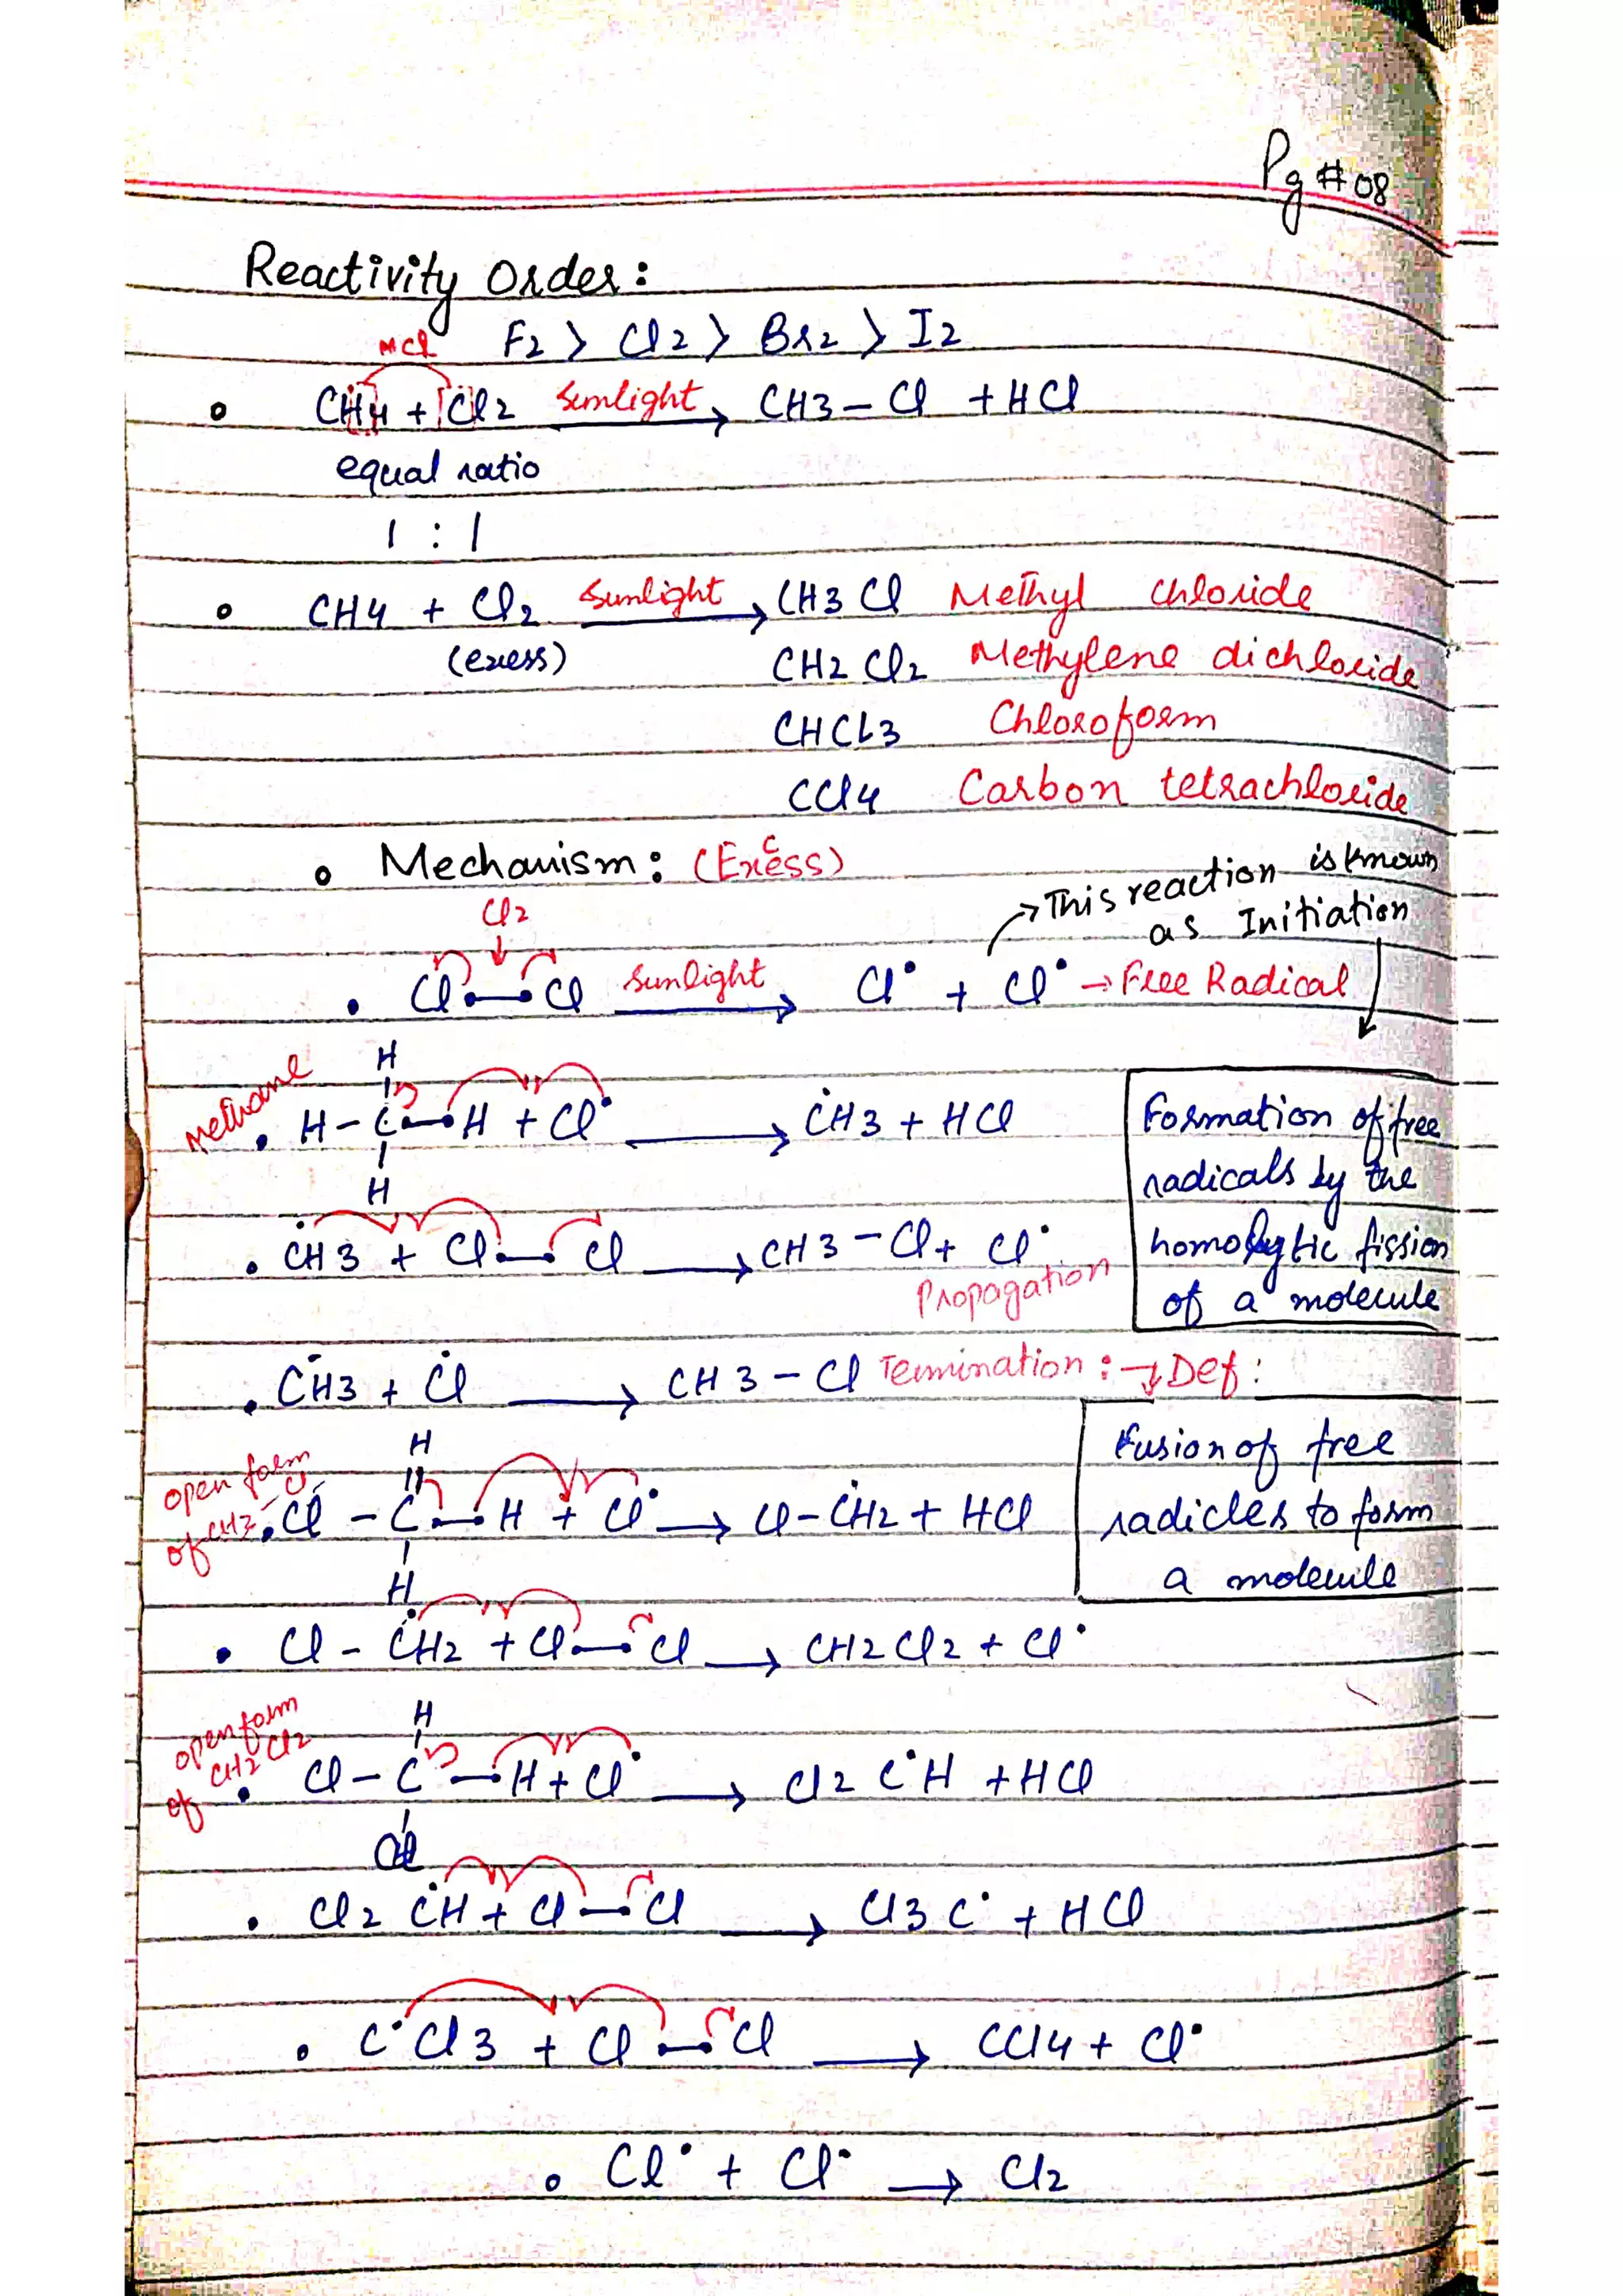 Pg # 08
Reactivity Order:
F2 > Cl2 > Br2 > I2
HCl
CH4 + Cl2 Sunlight → CH3 – Cl + HCl
equal ratio
1 : 1
CH4 + Cl2 Sunlight → CH3 Cl Methyl chloride
(exess) CH2 Cl2 Methylene dichloride
CHCl3 Chloroform
CCl4 Carbon tetrachloride
Mechanism: (Excess)
→ This reaction is known
as Initiation
Cl2
Cl • – • Cl sunlight → Cl• + Cl• → Free Radical
H
Methane H – C • – • H + Cl• → ĊH3 + HCl
H
Formation of free
radicals by the
homolytic fission
of a molecule
ĊH3 + Cl • – • Cl → CH3 – Cl + Cl•
Propagation
ĊH3 + Ċl → CH3 – Cl Termination: → Def:
Fusion of free
radicles to form
a molecule
open form
of CH3 – Cl
H
Cl – C • – • H + Cl• → Cl – ĊH2 + HCl
H
Cl – ĊH2 + Cl • – • Cl → CH2 Cl2 + Cl•
open form
of CH2 Cl2
H
Cl – C – • H + Cl• → Cl2 C•H + HCl
Cl
Cl2 ĊH + Cl – • Cl → Cl3 C• + HCl
C•Cl3 + Cl • – • Cl → CCl4 + Cl•
Cl• + Cl• → Cl2